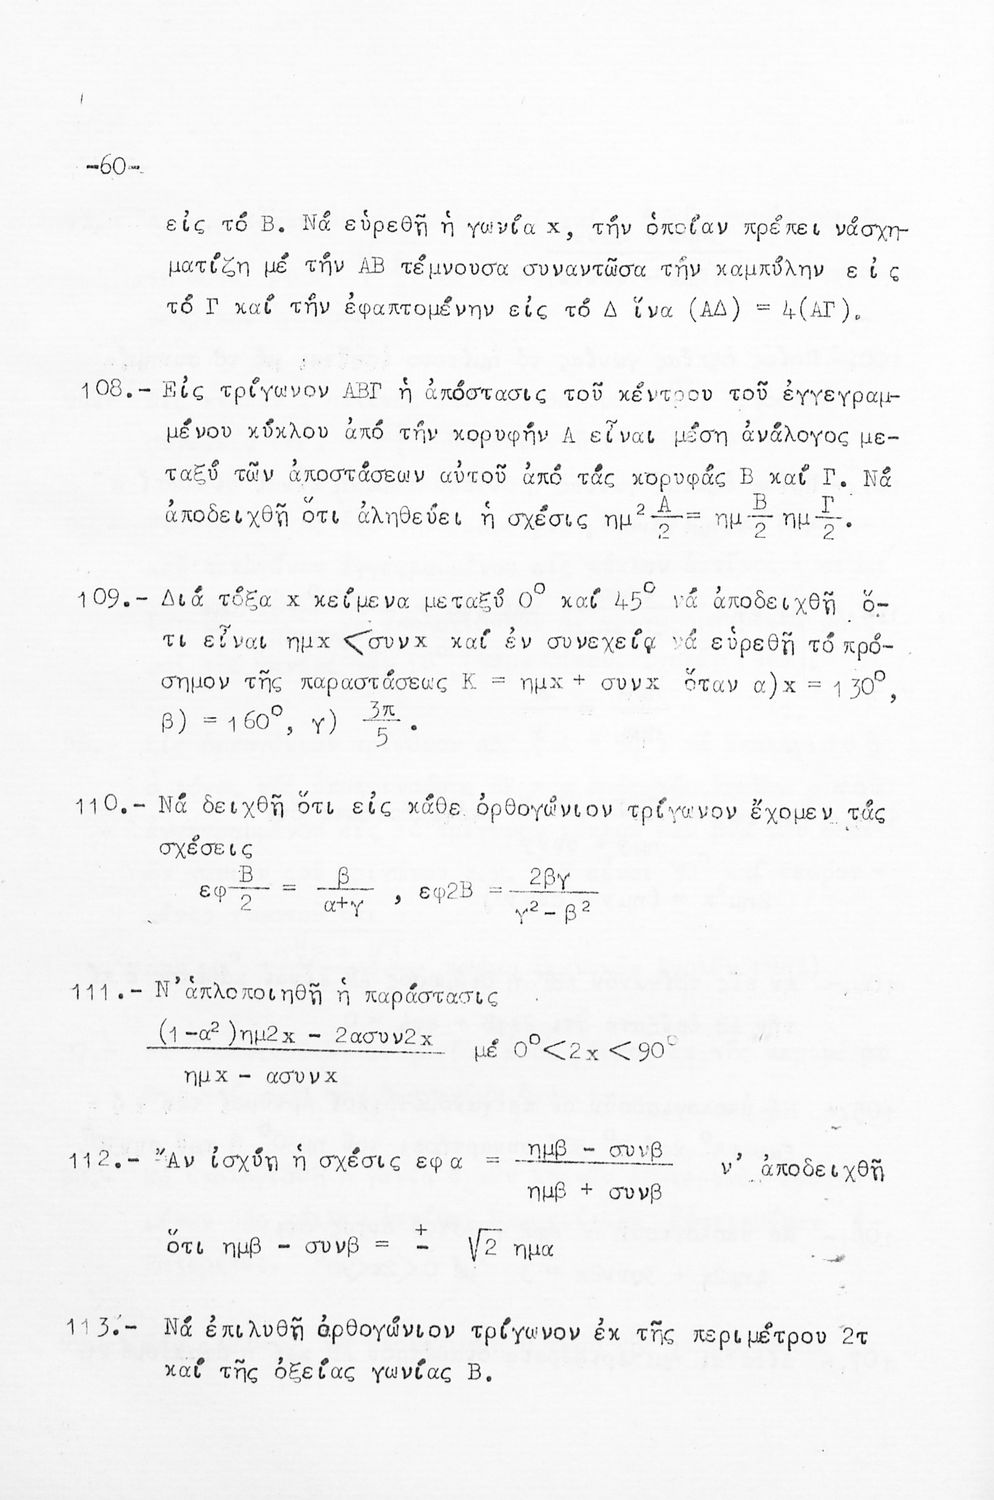 -60-
εἰς τό Β. Νά εὑρεθῇ ἡ γωνία x, τήν ὁποίαν πρέπει νάσχη-
ματίζῃ μέ τήν ΑΒ τέμνουσα συναντῶσα τήν καμπύλην ε ἰ ς
τό Γ καί τήν ἐφαπτομένην εἰς τό Δ ἵνα (ΑΔ) = 4(ΑΓ).
108.- Εἰς τρίγωνον ΑΒΓ ἡ ἀπόστασις τοῦ κέντρου τοῦ ἐγγεγραμ-
μένου κύκλου ἀπό τήν κορυφήν Α εἶναι μέση ἀνάλογος με-
ταξύ τῶν ἀποστάσεων αὐτοῦ ἀπό τάς κορυφάς Β καί Γ. Νά
ἀποδειχθῇ ὅτι ἀληθεύει ἡ σχέσις ημ² Α/2 = ημ Β/2 ημ Γ/2.
109.- Διά τόξα x κείμενα μεταξύ 0° καί 45° νά ἀποδειχθῇ ὅ-
τι εἶναι ημx < συνx καί ἐν συνεχείᾳ νά εὑρεθῇ τό πρό-
σημον τῆς παραστάσεως Κ = ημx + συνx ὅταν α)x = 130°,
β) = 160°, γ) 3π/5.
110.- Νά δειχθῇ ὅτι εἰς κάθε ὀρθογώνιον τρίγωνον ἔχομεν τάς
σχέσεις
εφ Β/2 = β/α+γ , εφ2Β = 2βγ/γ²-β²
111.- Ν' ἁπλοποιηθῇ ἡ παράστασις
(1-α²)ημ2x - 2ασυν2x
μέ 0°<2x<90°
ημx - ασυνx
112.- Ἄν ἰσχύῃ ἡ σχέσις εφα = ημβ - συνβ/ημβ + συνβ ν' ἀποδειχθῇ
ὅτι ημβ - συνβ = ± √2 ημα
113.- Νά ἐπιλυθῇ ὀρθογώνιον τρίγωνον ἐκ τῆς περιμέτρου 2τ
καί τῆς ὀξείας γωνίας Β.